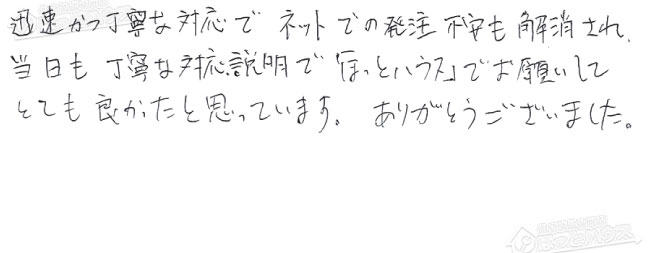 迅速かつ丁寧な対応で ネットでの発注不安も解消され、
当日も丁寧な対応、説明で「ほっとハウス」でお願いして
とても良かったと思っています。 ありがとうございました。
ほっとハウス